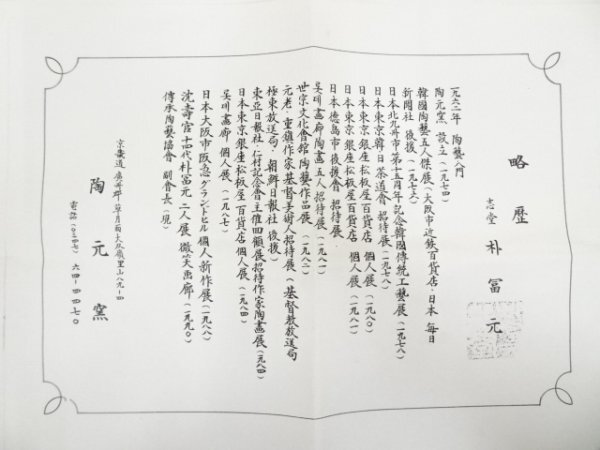 略歴
志堂 朴冨元
一九六二年 陶藝入門
陶元窯 設立(一九七四)
韓國陶藝五人傑展(大阪市近鉄百貨店・日本 每日
新聞社 後援)(一九七六)
日本北九州市第十五周年記念韓國傳統工藝展(一九七八)
日本東京韓日茶道會 招待展(一九七八)
日本東京銀座松板屋百貨店 個人展(一九八〇)
日本東京銀座松板屋百貨店 個人展(一九八一)
日本德島市後援會 招待展
畵廊陶畵五人招待展(一九八一)
世宗文化會館陶藝作品展(一九八二)
元老・重鎭作家基督美術人招待展(基督敎放送局
極東放送局・朝鮮日報社 後援)
東亞日報社 仁村記念會主催四願展招待作家陶畵展(一九八四)
日本東京銀座松板屋百貨店 個人展(一九八四)
畵廊 個人展(一九八七)
日本大阪市阪急グランドヒル個人新作展(一九八八)
沈壽官十四代朴冨元二人展 微笑畵廊(一九九〇)
傳承陶藝協會 副會長(現)
京畿道 廣州郡 草月面大双嶺里山八九-四
陶元窯
電話(〇三四七)六四-四四七〇